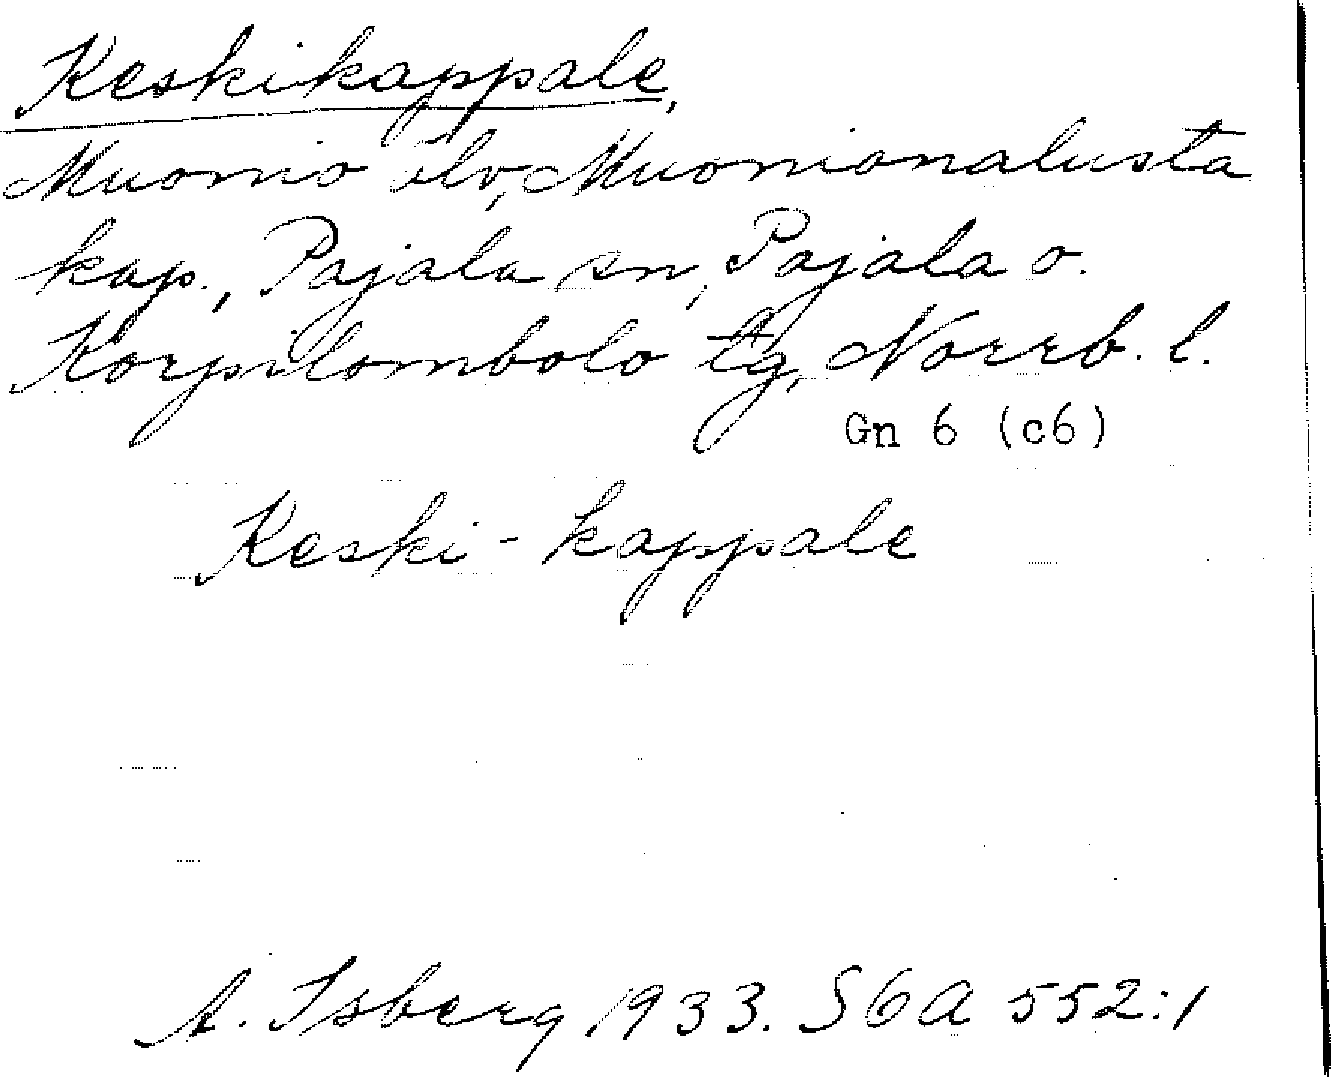 Keskikappale,
Muonio älv, Muonionalusta
kap., Pajala sn, Pajala o.
Korpilombolo tg, Norrb. l.
Gn 6 (c6)
Keski-kappale
A. Isberg 1933. SGA 552:1